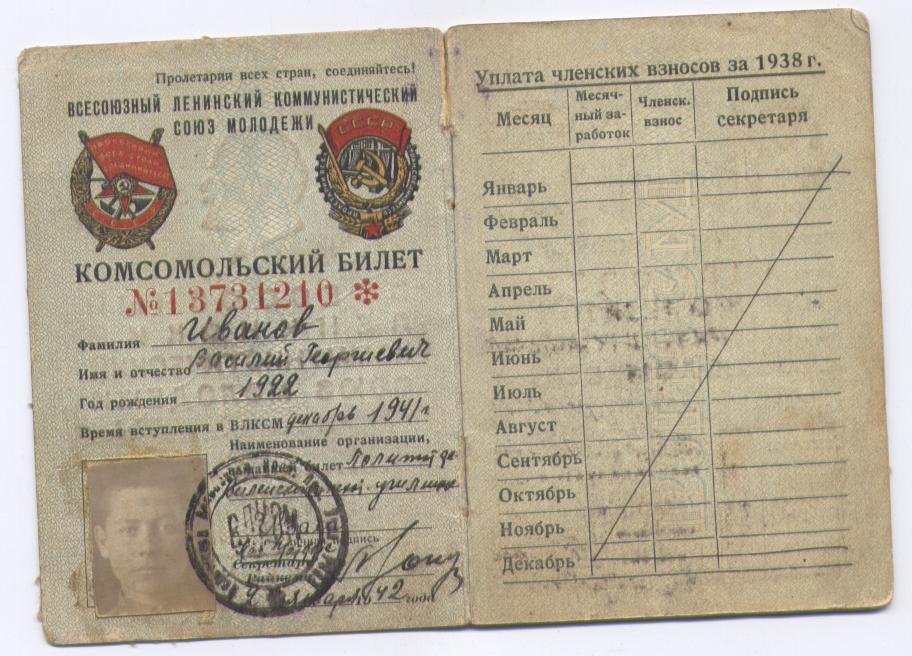 Пролетарии всех стран, соединяйтесь!
ВСЕСОЮЗНЫЙ ЛЕНИНСКИЙ КОММУНИСТИЧЕСКИЙ
СОЮЗ МОЛОДЕЖИ
СССР
КОМСОМОЛЬСКИЙ БИЛЕТ
№13731210 *
Фамилия Иванов
Имя и отчество Василий Георгиевич
Год рождения 1922
Время вступления в ВЛКСМ декабрь 1941 г
Наименование организации,
билет
подпись
Секретарь
Райкома
42 года
Уплата членских взносов за 1938 г.
Месяц
Месяч-
ный за-
работок
Членск.
взнос
Подпись
секретаря
Январь
Февраль
Март
Апрель
Май
Июнь
Июль
Август
Сентябрь
Октябрь
Ноябрь
Декабрь